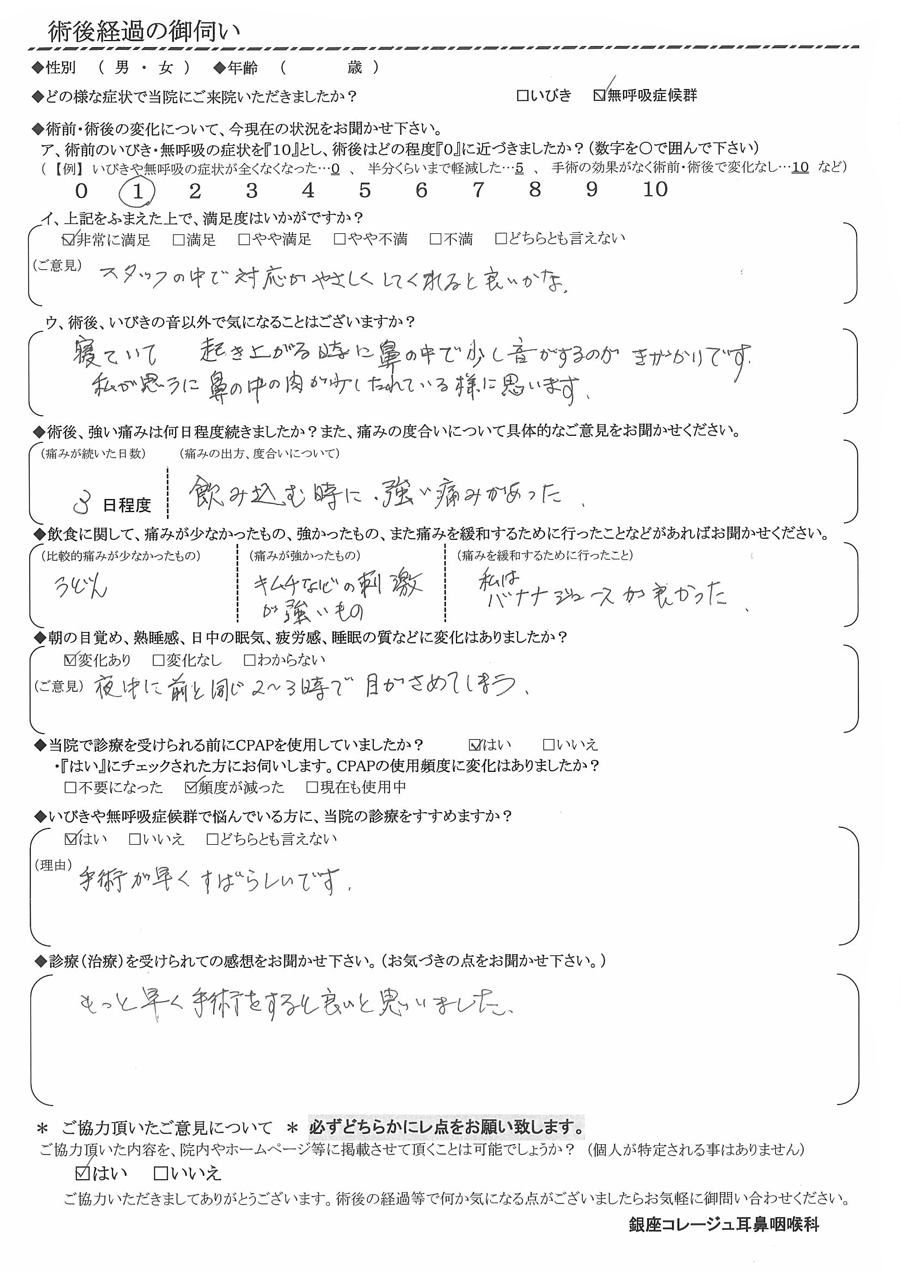 術後経過の御伺い
◆性別 ( 男 ・ 女 ) ◆年齢 ( 歳 )
◆どの様な症状で当院にご来院いただきましたか? □いびき ☑無呼吸症候群
◆術前・術後の変化について、今現在の状況をお聞かせ下さい。
ア、術前のいびき・無呼吸の症状を『10』とし、術後はどの程度『0』に近づきましたか?(数字を○で囲んで下さい)
(【例】いびきや無呼吸の症状が全くなくなった…0 、 半分くらいまで軽減した…5 、 手術の効果がなく術前・術後で変化なし…10 など)
0 1 2 3 4 5 6 7 8 9 10
イ、上記をふまえた上で、満足度はいかがですか?
☑非常に満足 □満足 □やや満足 □やや不満 □不満 □どちらとも言えない
(ご意見) スタッフの中で対応がやさしくしてくれると良いかな。
ウ、術後、いびきの音以外で気になることはございますか?
寝ていて 起き上がる時に鼻の中で少し音がするのが きがかりです。
私が思うに鼻の中の肉が少したれている様に思います。
◆術後、強い痛みは何日程度続きましたか?また、痛みの度合いについて具体的なご意見をお聞かせください。
(痛みが続いた日数) (痛みの出方、度合いについて)
3 日程度 飲み込む時に、強い痛みがあった。
◆飲食に関して、痛みが少なかったもの、強かったもの、また痛みを緩和するために行ったことなどがあればお聞かせください。
(比較的痛みが少なかったもの) (痛みが強かったもの) (痛みを緩和するために行ったこと)
うどん キムチなどの刺激 私は
が強いもの バナナジュースが良かった。
◆朝の目覚め、熟睡感、日中の眠気、疲労感、睡眠の質などに変化はありましたか?
☑変化あり □変化なし □わからない
(ご意見) 夜中に前と同じ2~3時で目がさめてしまう。
◆当院で診療を受けられる前にCPAPを使用していましたか? ☑はい □いいえ
・『はい』にチェックされた方にお伺いします。CPAPの使用頻度に変化はありましたか?
□不要になった ☑頻度が減った □現在も使用中
◆いびきや無呼吸症候群で悩んでいる方に、当院の診療をすすめますか?
☑はい □いいえ □どちらとも言えない
(理由) 手術が早くすばらしいです。
◆診療(治療)を受けられての感想をお聞かせ下さい。(お気づきの点をお聞かせ下さい。)
もっと早く手術をすると良いと思いました。
* ご協力頂いたご意見について * 必ずどちらかにレ点をお願い致します。
ご協力頂いた内容を、院内やホームページ等に掲載させて頂くことは可能でしょうか? (個人が特定される事はありません)
☑はい □いいえ
ご協力いただきましてありがとうございます。術後の経過等で何か気になる点がございましたらお気軽に御問い合わせください。
銀座コレージュ耳鼻咽喉科